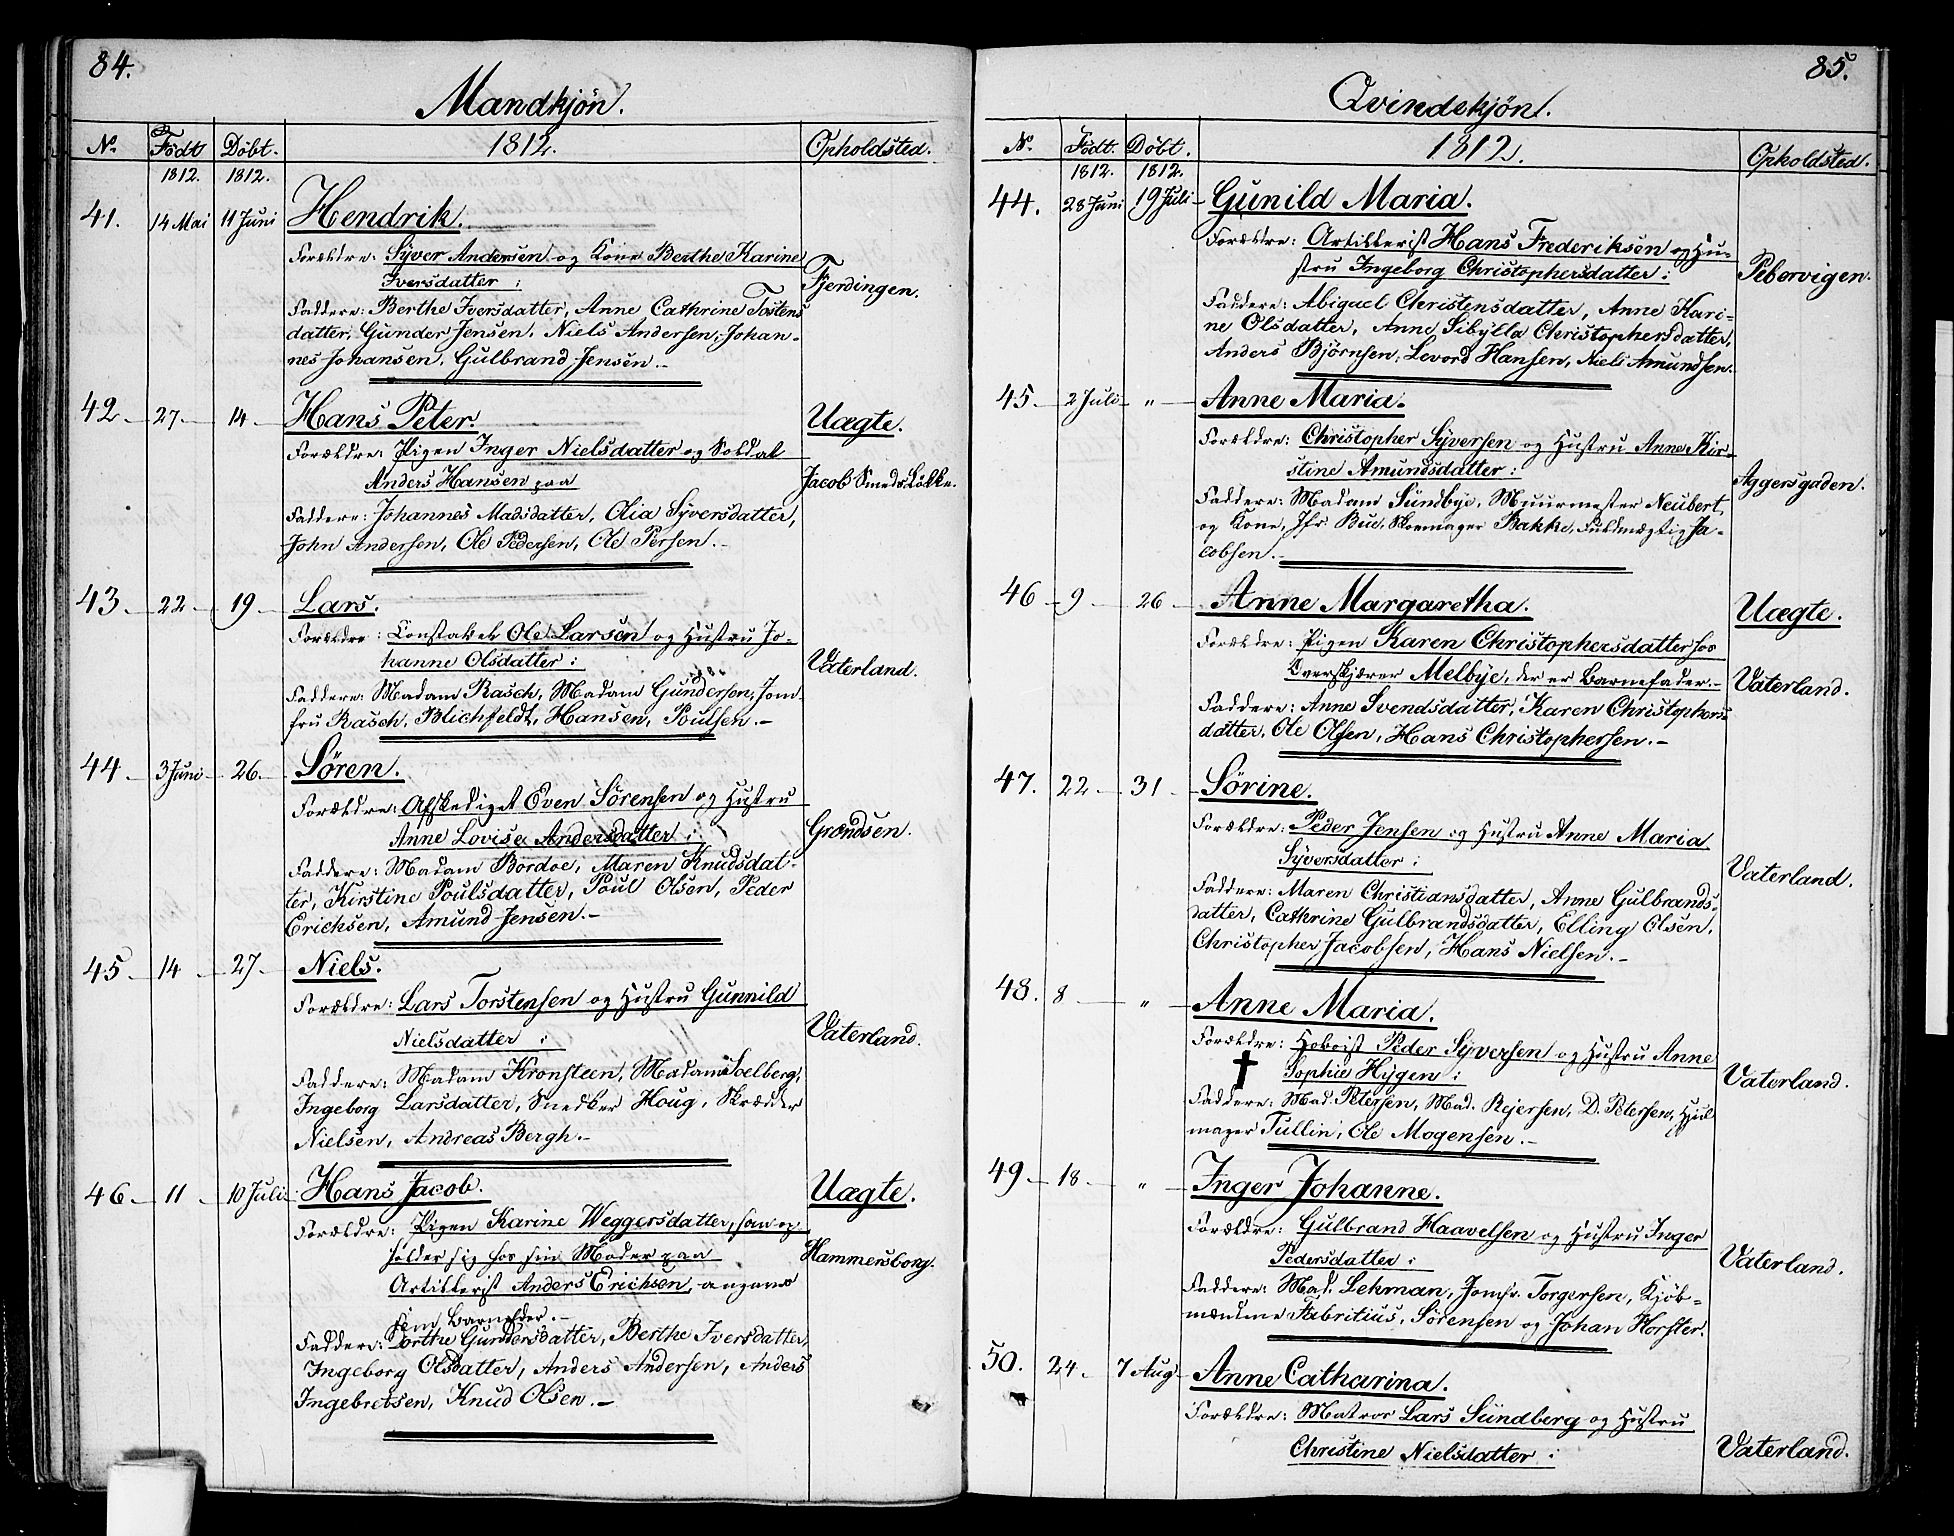 84.
Mandkjön.
No. Födt Döbt. 1812. Opholdsted.
1812. 1812.
41. 14 Mai 11 Juni Hendrik.
Forældre: Syver Andersen og Kone Berthe Karine
Iversdatter :
Fjerdingen.
Faddere: Berthe Iversdatter, Anne Cathrine Tostens
datter, Gunder Jensen, Niels Andersen, Johan-
nes Johansen, Gulbrand Jensen.-
42 - 27 - 14 - Hans Peter. Uægte.
Forældre: Pigen Inger Nielsdatter og Soldat
Anders Hansen paa
Jacob Smeds Løkke.
Faddere: Johannes Madsdatter, Olia Syversdatter,
John Andersen, Ole Pedersen, Ole Persen.-
43 - 22 - 19 - Lars.
Forældre: Constabel Ole Larsen og Hustru Jo-
hanne Olsdatter :
Vaterland.
Faddere: Madam Rasch, Madam Gundersen, Jom-
fru Rasch, Blichfeldt, Hansen, Poulsen.-
44 - 3 Juni - 26. - Sören.
Forældre: Afskediget Even Sörensen og Hustru
Anne Lovise Andersdatter :
Grændsen.
Faddere: Madam Bordoe, Maren Knudsdat-
ter, Kirstine Poulsdatter, Poul Olsen, Peder
Erichsen, Amund Jensen.-
45 - 14 - 27 - Niels.
Forældre: Lars Torstensen og Hustru Gunnild
Nielsdatter :
Vaterland.
Faddere: Madam Kronsteen, Madam Soelberg,
Ingeborg Larsdatter, Snedker Houg, Skrædder
Nielsen, Andreas Bergh.-
46 - 11 - 10 Juli - Hans Jacob. Uægte.
Forældre: Pigen Karine Weggersdatter, som op-
holder sig hos sin Moder paa
Hammersborg.
Artillerist Anders Erichsen, angaves
som Barnefader.-
Faddere: Dorthe Gundersdatter, Berthe Iversdatter,
Ingeborg Olsdatter, Anders Andersen, Anders
Ingebretsen, Knud Olsen.-
85.
Qvindekjön.
No. Födt. Döbt. 1812. Opholdsted.
1812. 1812.
44. 28 Juni 19 Juli - Gunild Maria.
Forældre: Artillerist Hans Frederiksen og Hu-
stru Ingeborg Christophersdatter :
Pebervigen.
Faddere: Abigael Christensdatter, Anne Kari-
ne Olsdatter, Anne Sibylla Christophersdatter,
Anders Björnsen, Levord Hansen, Niels Amundsen.
45 - 2 Juli - " - Anne Maria.
Forældre: Christopher Syversen og Hustru Anne Kir-
stine Amundsdatter :
Aggersgaden.
Faddere: Madam Sundbye, Muurmester Neubert
og Kone, Jfr. Bue, Skomager Bakke, Fuldmægtig Ja-
cobsen.-
46 - 9 - 26 - Anne Margaretha. Uægte.
Forældre: Pigen Karen Christophersdatter hos
Overskjærer Melbye, der er Barnefader.-
Vaterland.
Faddere: Anne Svendsdatter, Karen Christophers
datter, Ole Olsen, Hans Christophersen.-
47. 22 - 31 - Sörine.
Forældre: Peder Jensen og Hustru Anne Maria
Syversdatter :
Vaterland.
Faddere: Maren Christiansdatter, Anne Gulbrands-
datter, Cathrine Gulbrandsdatter, Elling Olsen,
Christopher Jacobsen, Hans Nielsen.-
48. 8 - " - Anne Maria.
Forældre: Hoboist Peder Syversen og Hustru Anne
Sophie Hygen :
Vaterland.
Faddere: Mad. Petersen, Mad. Rejersen, D. Petersen, Hjul
mager Tullin, Ole Mogensen.-
49 - 18 - " - Inger Johanne.
Forældre: Gulbrand Haavelsen og Hustru Inger
Pedersdatter :
Vaterland.
Faddere: Mad. Lehman, Jomfr. Torgersen, Kjöb-
mændene Fabritius, Sörensen og Johan Horster.
50. 24 - 7 Aug - Anne Catharina.
Forældre: Matros Lars Sundberg og Hustru
Christine Nielsdatter :
Vaterland.